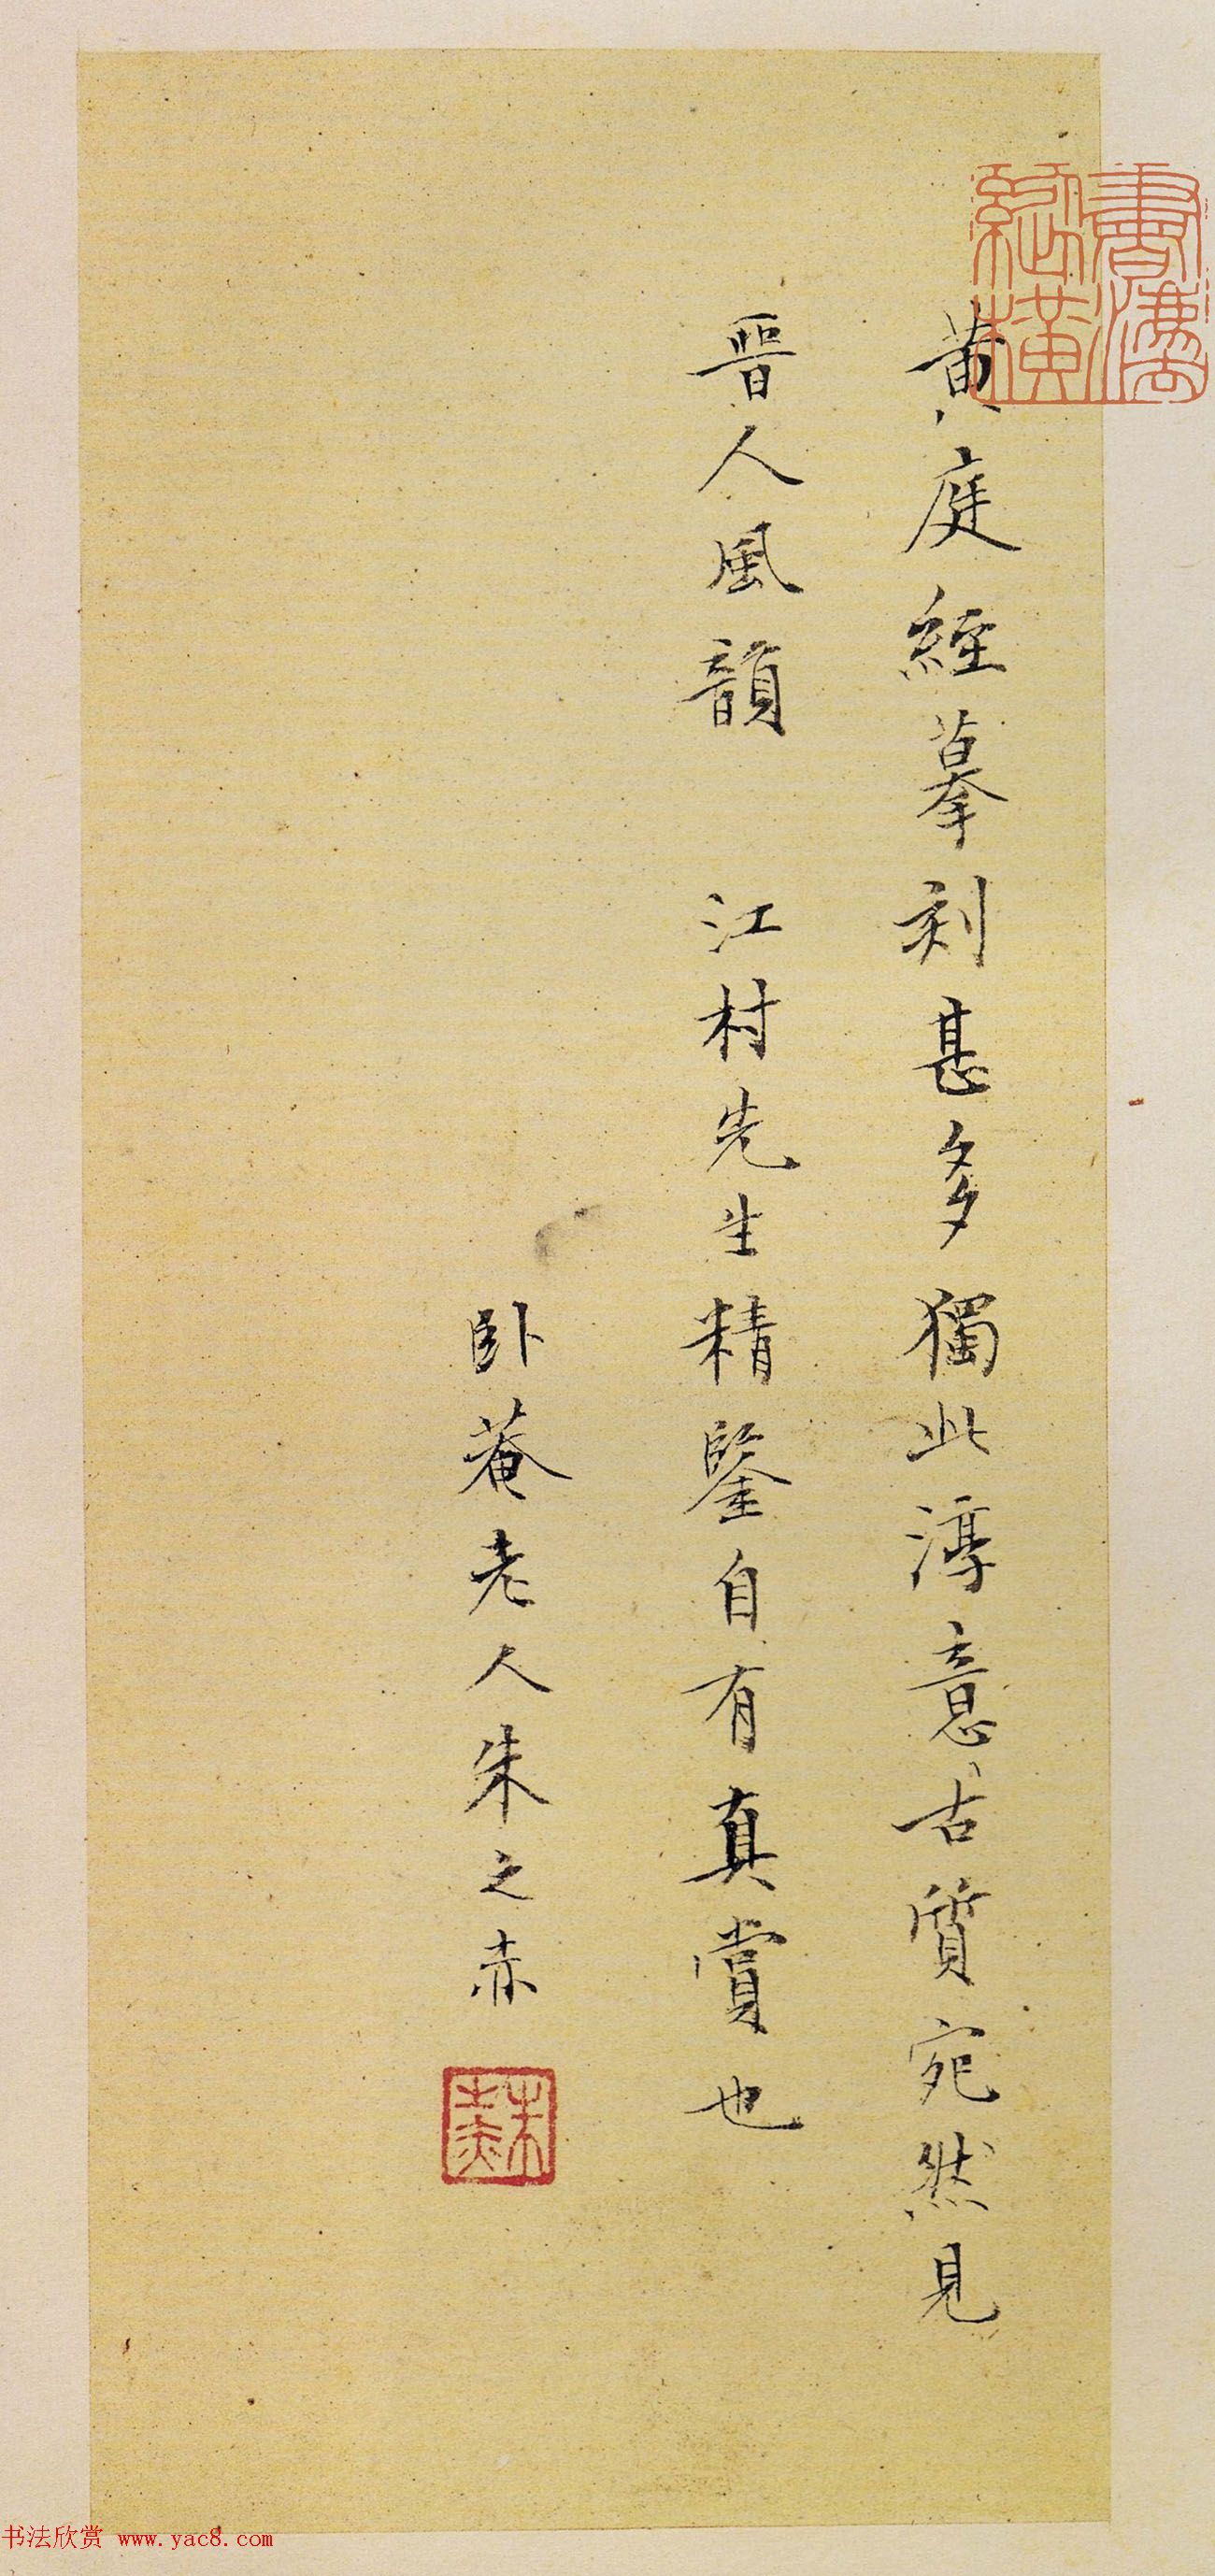 黄庭經摹刻甚多獨此淳意古質宛然見
晋人風韻 江村先生精鑒自有真賞也
卧菴老人朱之赤
书法欣赏 www.yac8.com